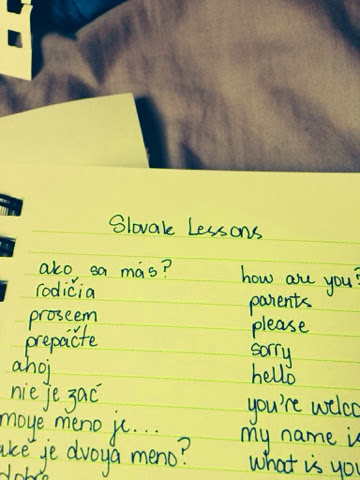 Slovak Lessons
ako sa máš? how are you?
rodičia parents
proseem please
prepáčte sorry
ahoj hello
nie je zač you're welco
moye meno je... my name is
ake je dvoya meno? what is you
dobre